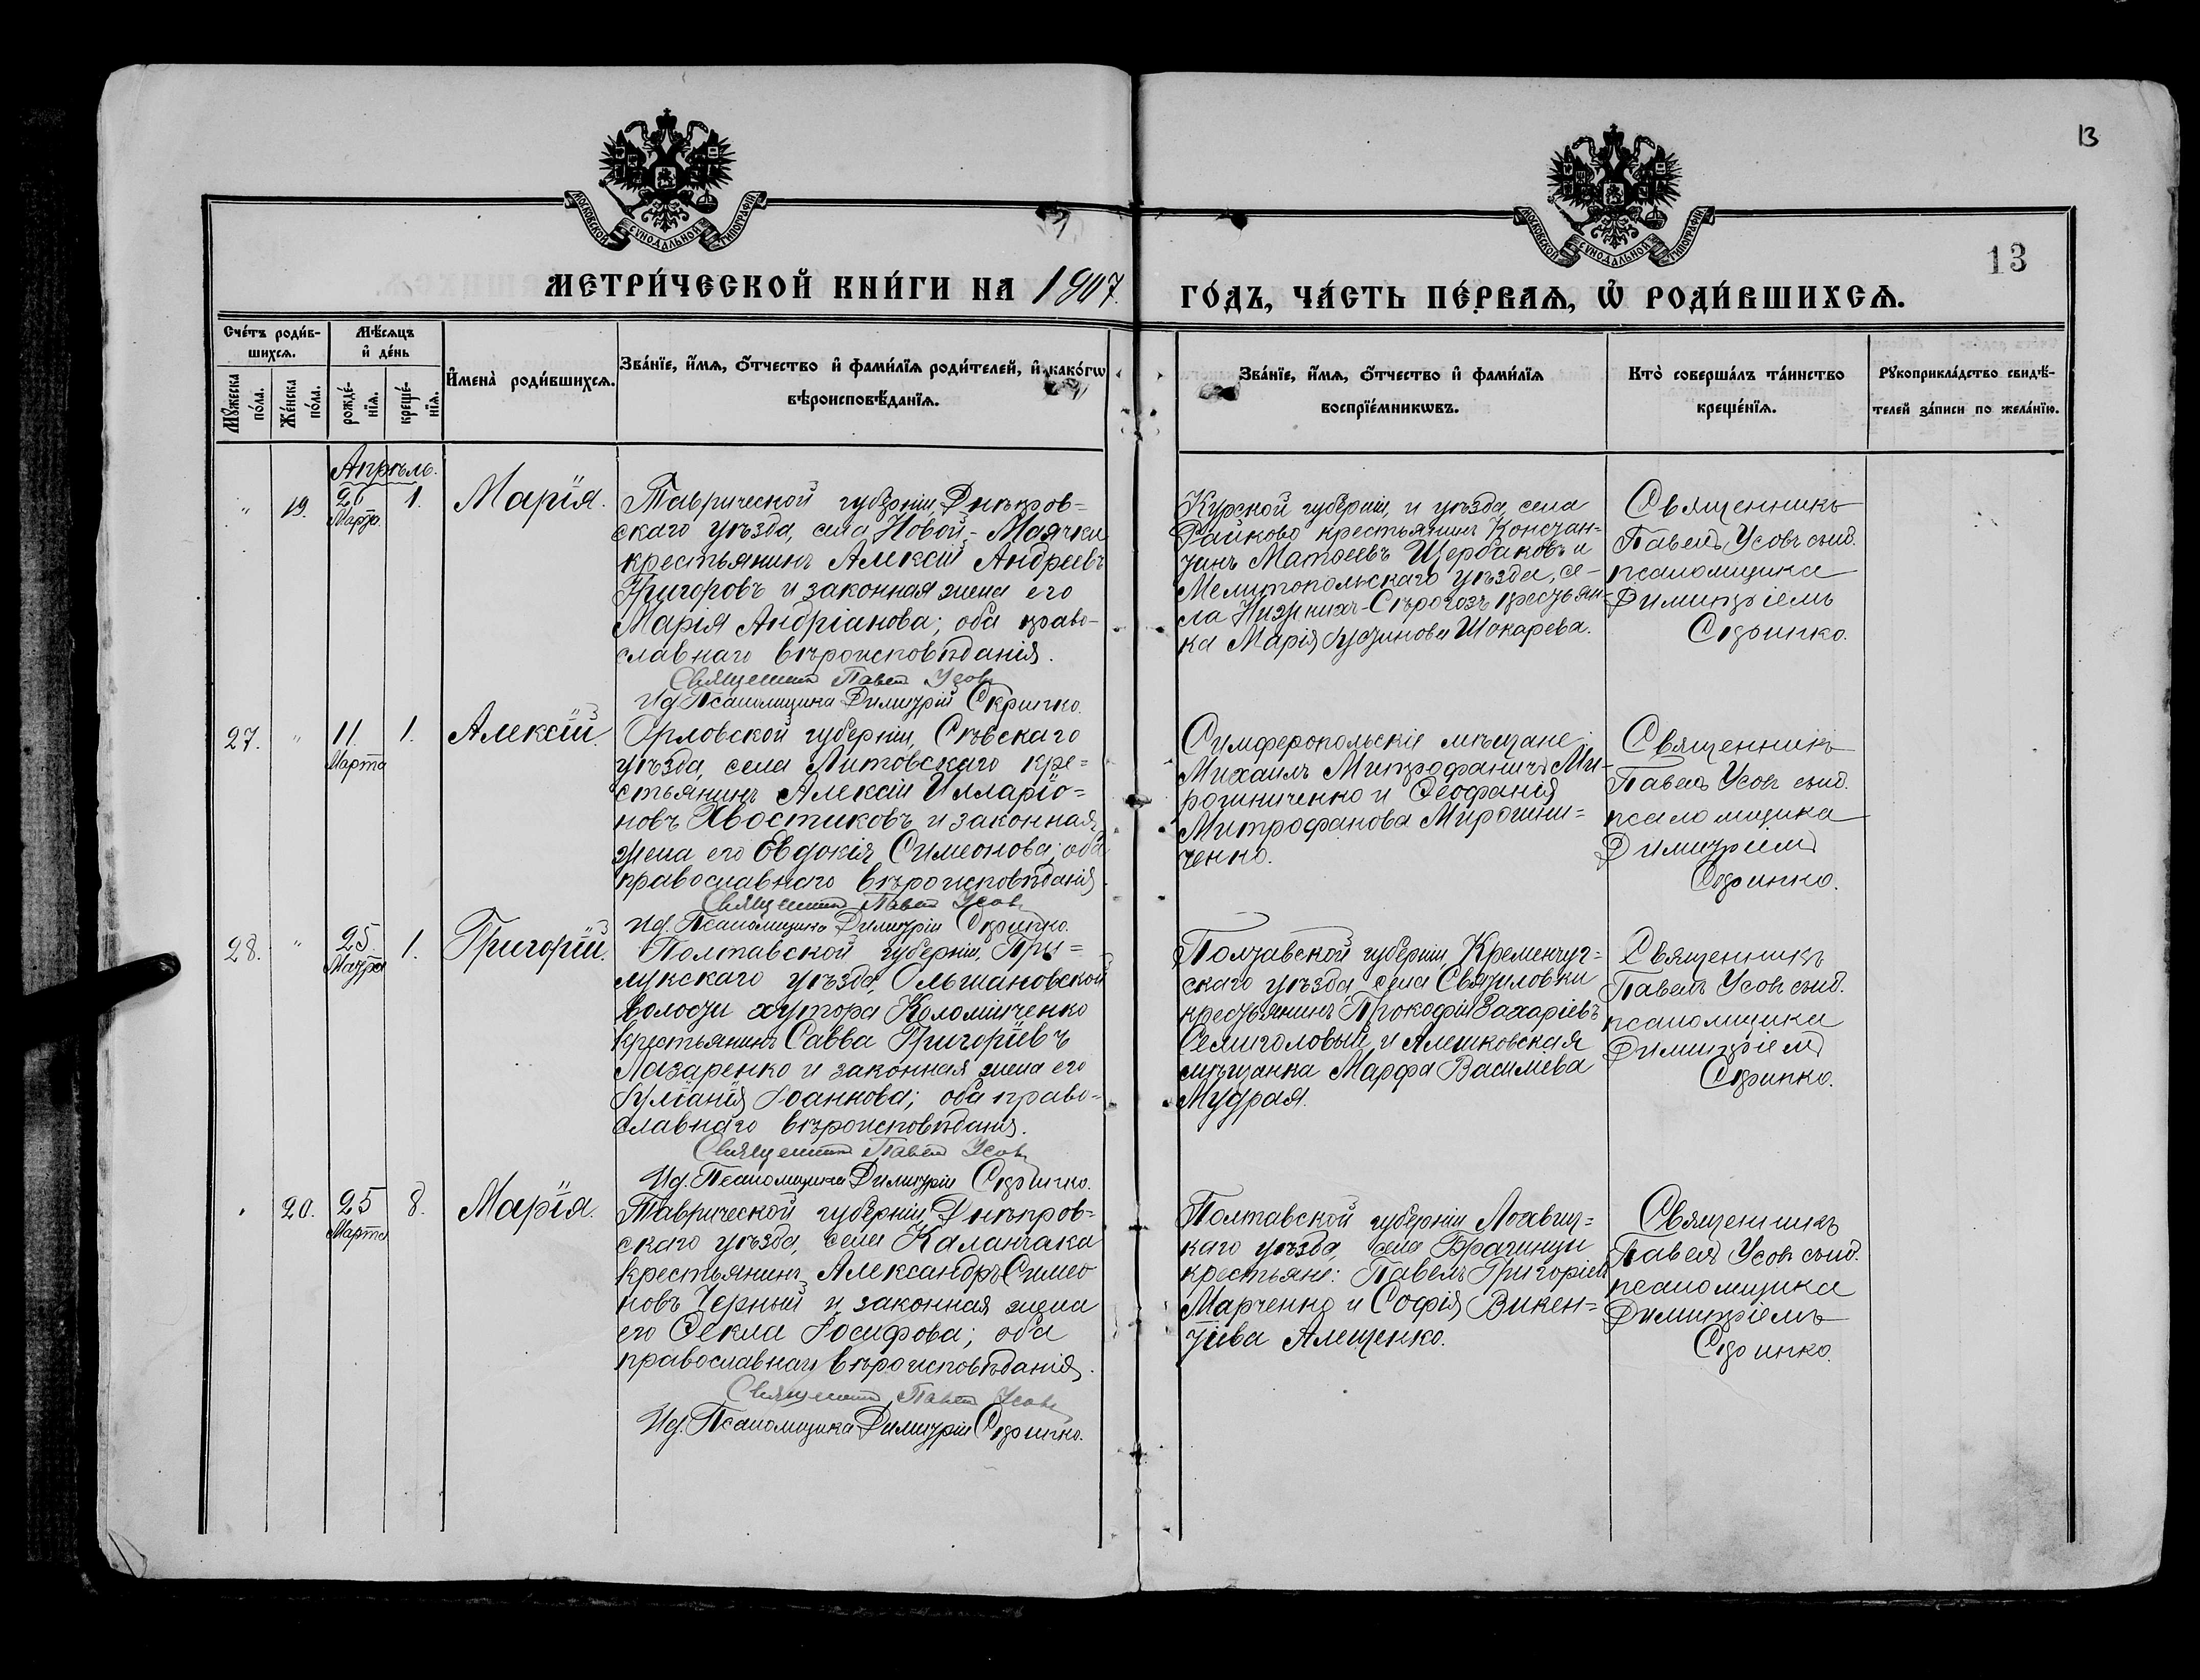 13
МОСКОВСКОЙ СУНОДАЛЬНОЙ ТИПОГРАФІИ
МОСКОВСКОЙ СУНОДАЛЬНОЙ ТИПОГРАФІИ
13
МЕТРИ́ЧЕСКОЙ КНИ́ГИ НА 1907.
ГО́ДЪ, ЧА́СТЬ ПЕ́РВАѦ, Ѡ҆ РОДИ́ВШИХСѦ.
Сче́тъ роди́в-
шихсѧ.
Мѣ́сѧцъ
и҆ де́нь
Мꙋ́жеска
по́ла.
Же́нска
по́ла.
рожде́-
нїѧ.
креще́-
нїѧ.
И҆мена̀ роди́вшихсѧ.
Зва́нїе, и҆́мѧ, ѻ҆́тчество и҆ фами́лїѧ роди́телей, и҆ како́гѡ
вѣроисповѣ́данїѧ.
Зва́нїе, и҆́мѧ, ѻ҆́тчество и҆ фами́лїѧ
воспрїе́мникѡвъ.
Кто̀ соверша́лъ та́инство
креще́нїѧ.
Рꙋкоприкла́дство свидѣ́-
телей за́писи по жела́нїю.
Апрѣль.
" 19. 26 Марта. 1. Марія.
Таврической губерніи, Днѣпров-
скаго уѣзда, села Новой-Маячки
крестьянинъ Алексій Андреевъ
Григоровъ и законная жена его
Марія Андріанова; оба право-
славнаго вѣроисповѣданія.
Священникъ Павелъ Усовъ
Ид. Псаломщика Димитрій Скрипко.
Курской губерніи, и уѣзда, села
крестьянинъ Констан-
тинъ Матѳеевъ Щербаковъ и
Мелитопольскаго уѣзда, се-
ла Нижнихъ-Сѣрогозъ крестьян-
ка Марія Іустинова Шокарева.
Священникъ
Павелъ Усовъ съ ид.
псаломщика
Димитріемъ
Скрипко.
27. " 11. Марта 1. Алексій.
Орловской губерніи, Сѣвскаго
уѣзда, села Литовскаго кре=
стьянинъ Алексій Илларіо=
новъ Хвостиковъ и законная
жена его Евдокія Симеонова; оба
православнаго вѣроисповѣданія.
Священникъ Павелъ Усовъ
Ид. Псаломщика Димитрій Скрипко.
Симферопольскіе мѣщане:
Михаилъ Митрофаничъ Ми-
рошниченко и Ѳеофанія
Митрофанова Мирошни=
ченко.
Священникъ
Павелъ Усовъ съ ид.
псаломщика
Димитріемъ
Скрипко.
28. " 25. Марта 1. Григорій.
Полтавской губерніи, При=
лукскаго уѣзда, Ольшановской
волости хутора Коломійченко
крестьянинъ Савва Григоріевъ
Лазаренко и законная жена его
Іуліанія Іоаннова; оба право-
славнаго вѣроисповѣданія.
Священникъ Павелъ Усовъ
Ид. Псаломщика Димитрій Скрипко.
Полтавской губерніи, Кременчуг=
скаго уѣзда села Святиловки
крестьянинъ Прокофій Захаріевъ
Семиголовый, и Алешковская
мѣщанка Марфа Василіева
Мудрая.
Священникъ
Павелъ Усовъ съ ид.
псаломщика
Димитріемъ
Скрипко.
" 20. 25 Марта 8. Марія.
Таврической губерніи Днѣпров=
скаго уѣзда, села Каланчака
крестьянинъ Александръ Симео
новъ Черный и законная жена
его Ѳекла Іосифова; оба
православнаго вѣроисповѣданія.
Священникъ Павелъ Усовъ
Ид. Псаломщика Димитрій Скрипко.
Полтавской губерніи Лохвиц=
каго уѣзда, села Брагинци
крестьяне: Павелъ Григоріевъ
Марченко и Софія Викен=
тіева Алещенко.
Священникъ
Павелъ Усовъ съ ид.
псаломщика
Димитріемъ
Скрипко.